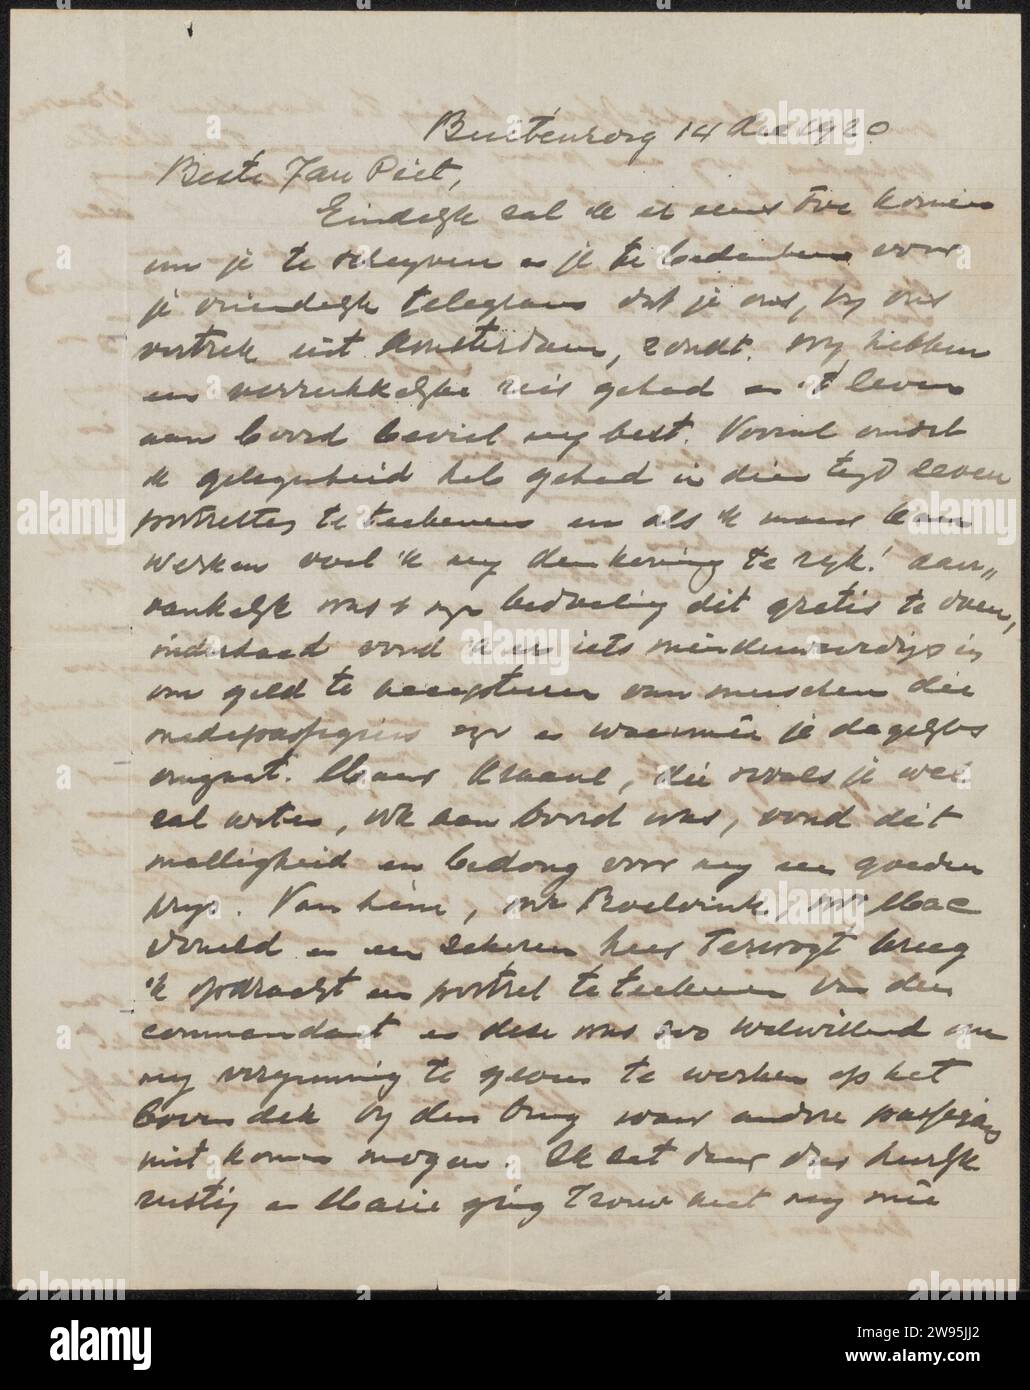 Buitenzorg 14 Dec 1920
Beste Jan Piet,
Eindelijk zal ik er eens toe komen
om je te schrijven en je te bedanken voor
je vriendelijk telegram dat je ons, bij ons
vertrek uit Amsterdam, zondt. Wij hebben
een verrukkelijke reis gehad en 't leven
aan boord beviel mij best. Vooral omdat
ik gelegenheid heb gehad in dien tijd zeven
portretten te teekenen en als ik maar kan
werken voel ik mij den koning te rijk! Aan„
vankelijk was 't mijn bedoeling dit gratis te doen,
inderdaad vond ik er iets minderwaardigs in
om geld te accepteeren van menschen die
medepassagiers zijn en waarmêe je dagelijks
omgaat. Maar Kraane, die zooals je wel
zal weten, ook aan boord was, vond dit
malligheid en bedong voor mij een goeden
prijs. Van Lier, mr Roelvink, mr Mac
Donald en een zekeren heer Terwogt kreeg
ik opdracht een portret te teekenen van den
commandant en deze was zoo welwillend om
mij vergunning te geven te werken op het
bovendek bij den brug waar andere passagiers
niet komen mogen. Ik zat daar dus heerlijk
rustig en Marie ging trouw met mij mêe
alamy
Image ID: 2W95JJ2
www.alamy.com